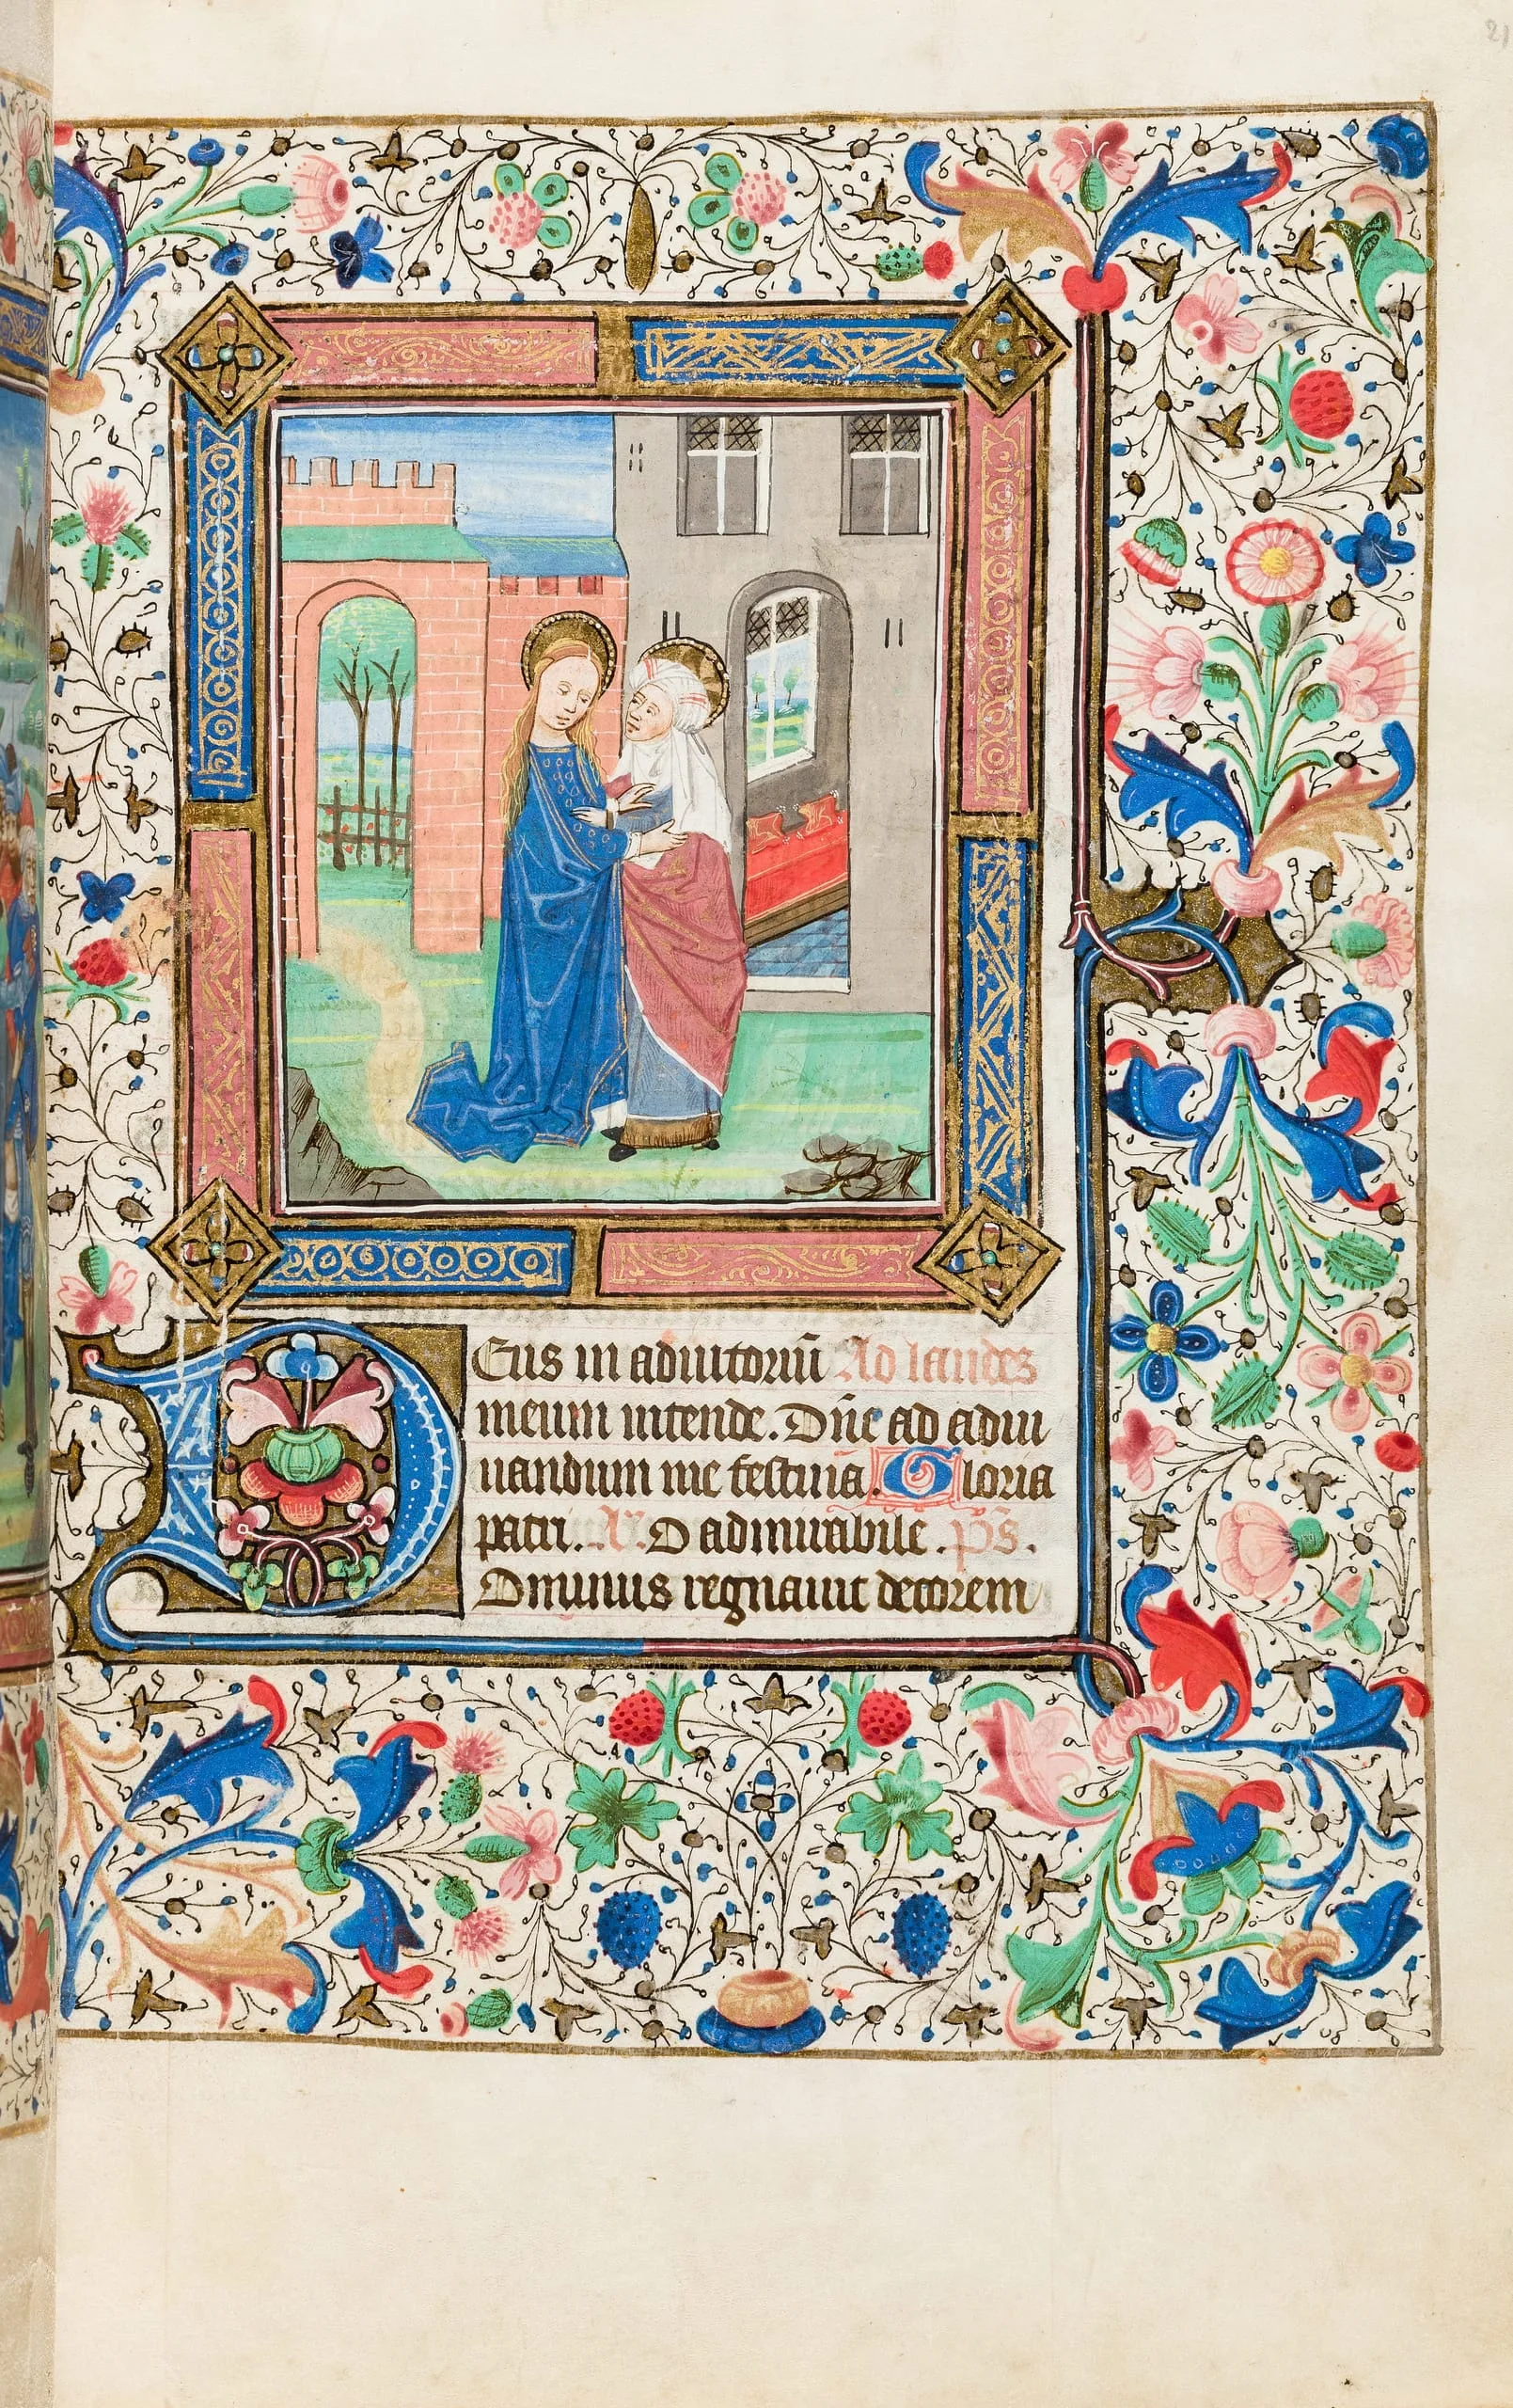 21
Deus in adiutoriũ Ad laudes
meum intende. Dñe ad adiu
uandum me festina. Gloria
patri. Añ. O admirabile. p̃s.
Dominus regnauit decorem